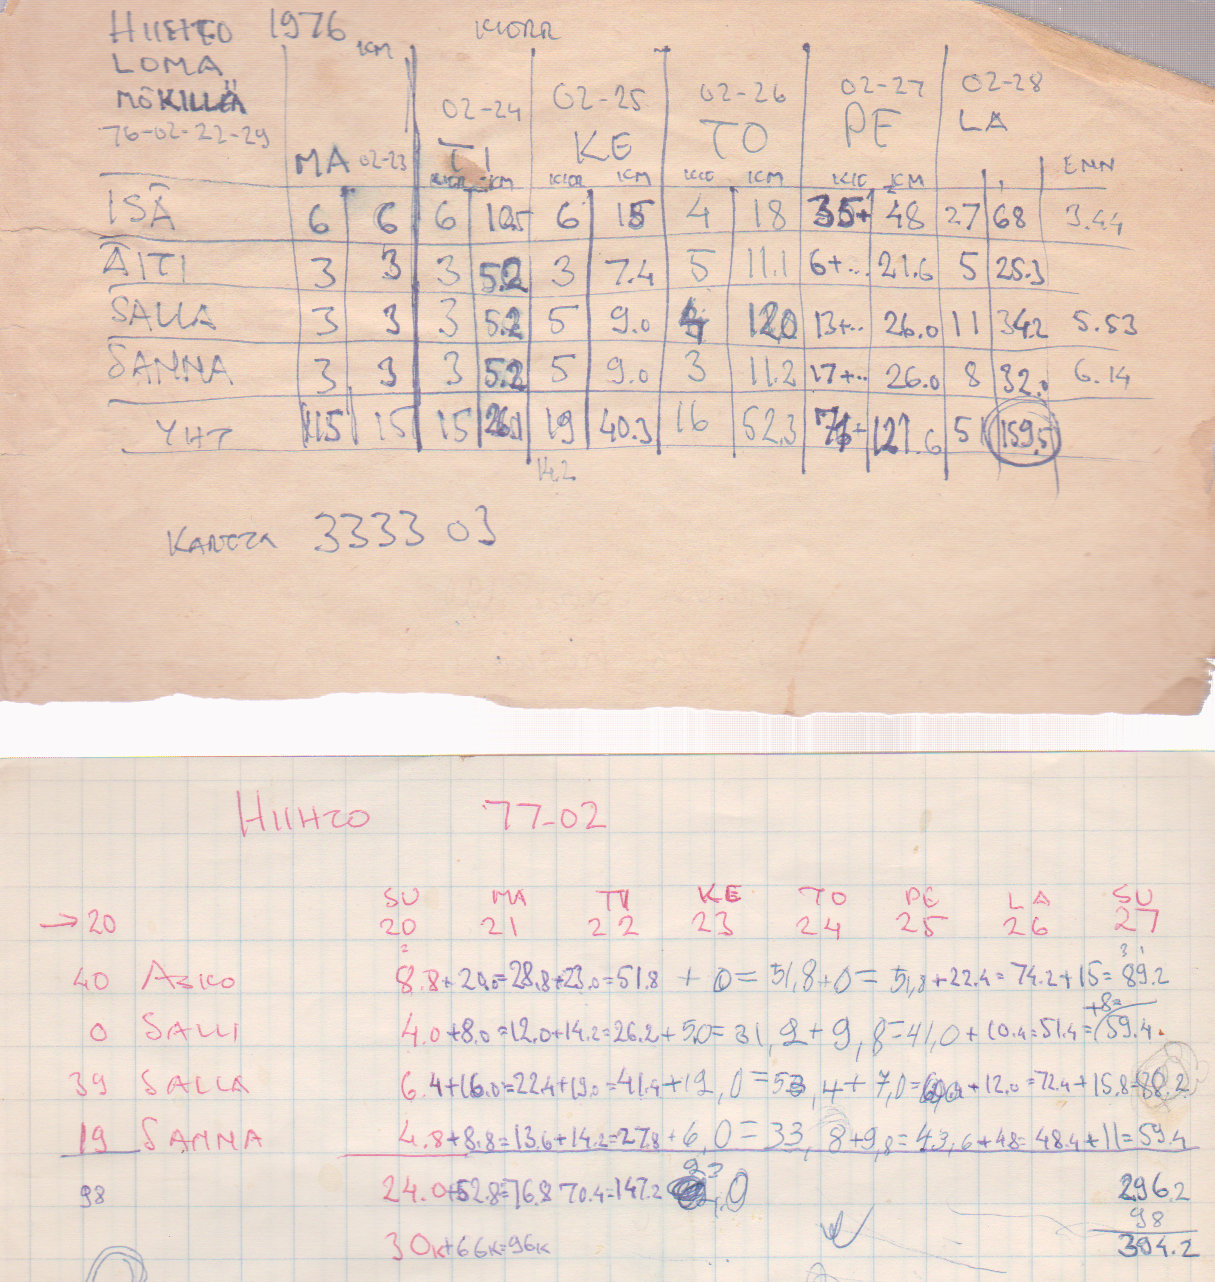 HIIHTO 1976 KM KIERR
LOMA
MÖKILLÄ 02-24 02-25 02-26 02-27 02-28
76-02-22-29 MA 02-23 TI KE TO PE LA ENN
KIER KM KIER KM KIE KM KIE KM
ISÄ 6 6 6 10.5 6 15 4 18 35+ 48 27 68 3.44
ÄITI 3 3 3 5.2 3 7.4 5 11.1 6+.. 21.6 5 25.3
SALLA 3 3 3 5.2 5 9.0 4 12.0 13+.. 26.0 11 34.2 5.53
SANNA 3 3 3 5.2 5 9.0 3 11.2 17+.. 26.0 8 32.0 6.14
YHT 15 15 26.1 19 40.3 16 52.3 71+ 121.6 51 159.5
14.2
KARTTA 3333 03
HIIHTO 77-02
SU MA TI KE TO PE LA SU
→20 20 21 22 23 24 25 26 27
40 ASKO 8.8+20.0=28.8+23.0=51.8 + 0= 51,8+0= 51,8+22.4=74.2+15=89.2
+8=
0 SALLI 4.0+8.0=12.0+14.2=26.2+5.0=31,2+9,8=41,0+10.4=51.4=59.4
39 SALLA 6.4+16.0=22.4+19.0=41.4+12,0=53,4+7,0= +12.0=72.4+15.8=88.2
19 SANNA 4.8+8.8=13.6+14.2=27.8+6,0=33,8+9,8=43,6+4.8=48.4+11=59.4
98 24.0+52.8=76.8 70.4=147.2 296.2
98
30K+66K=96K 394.2